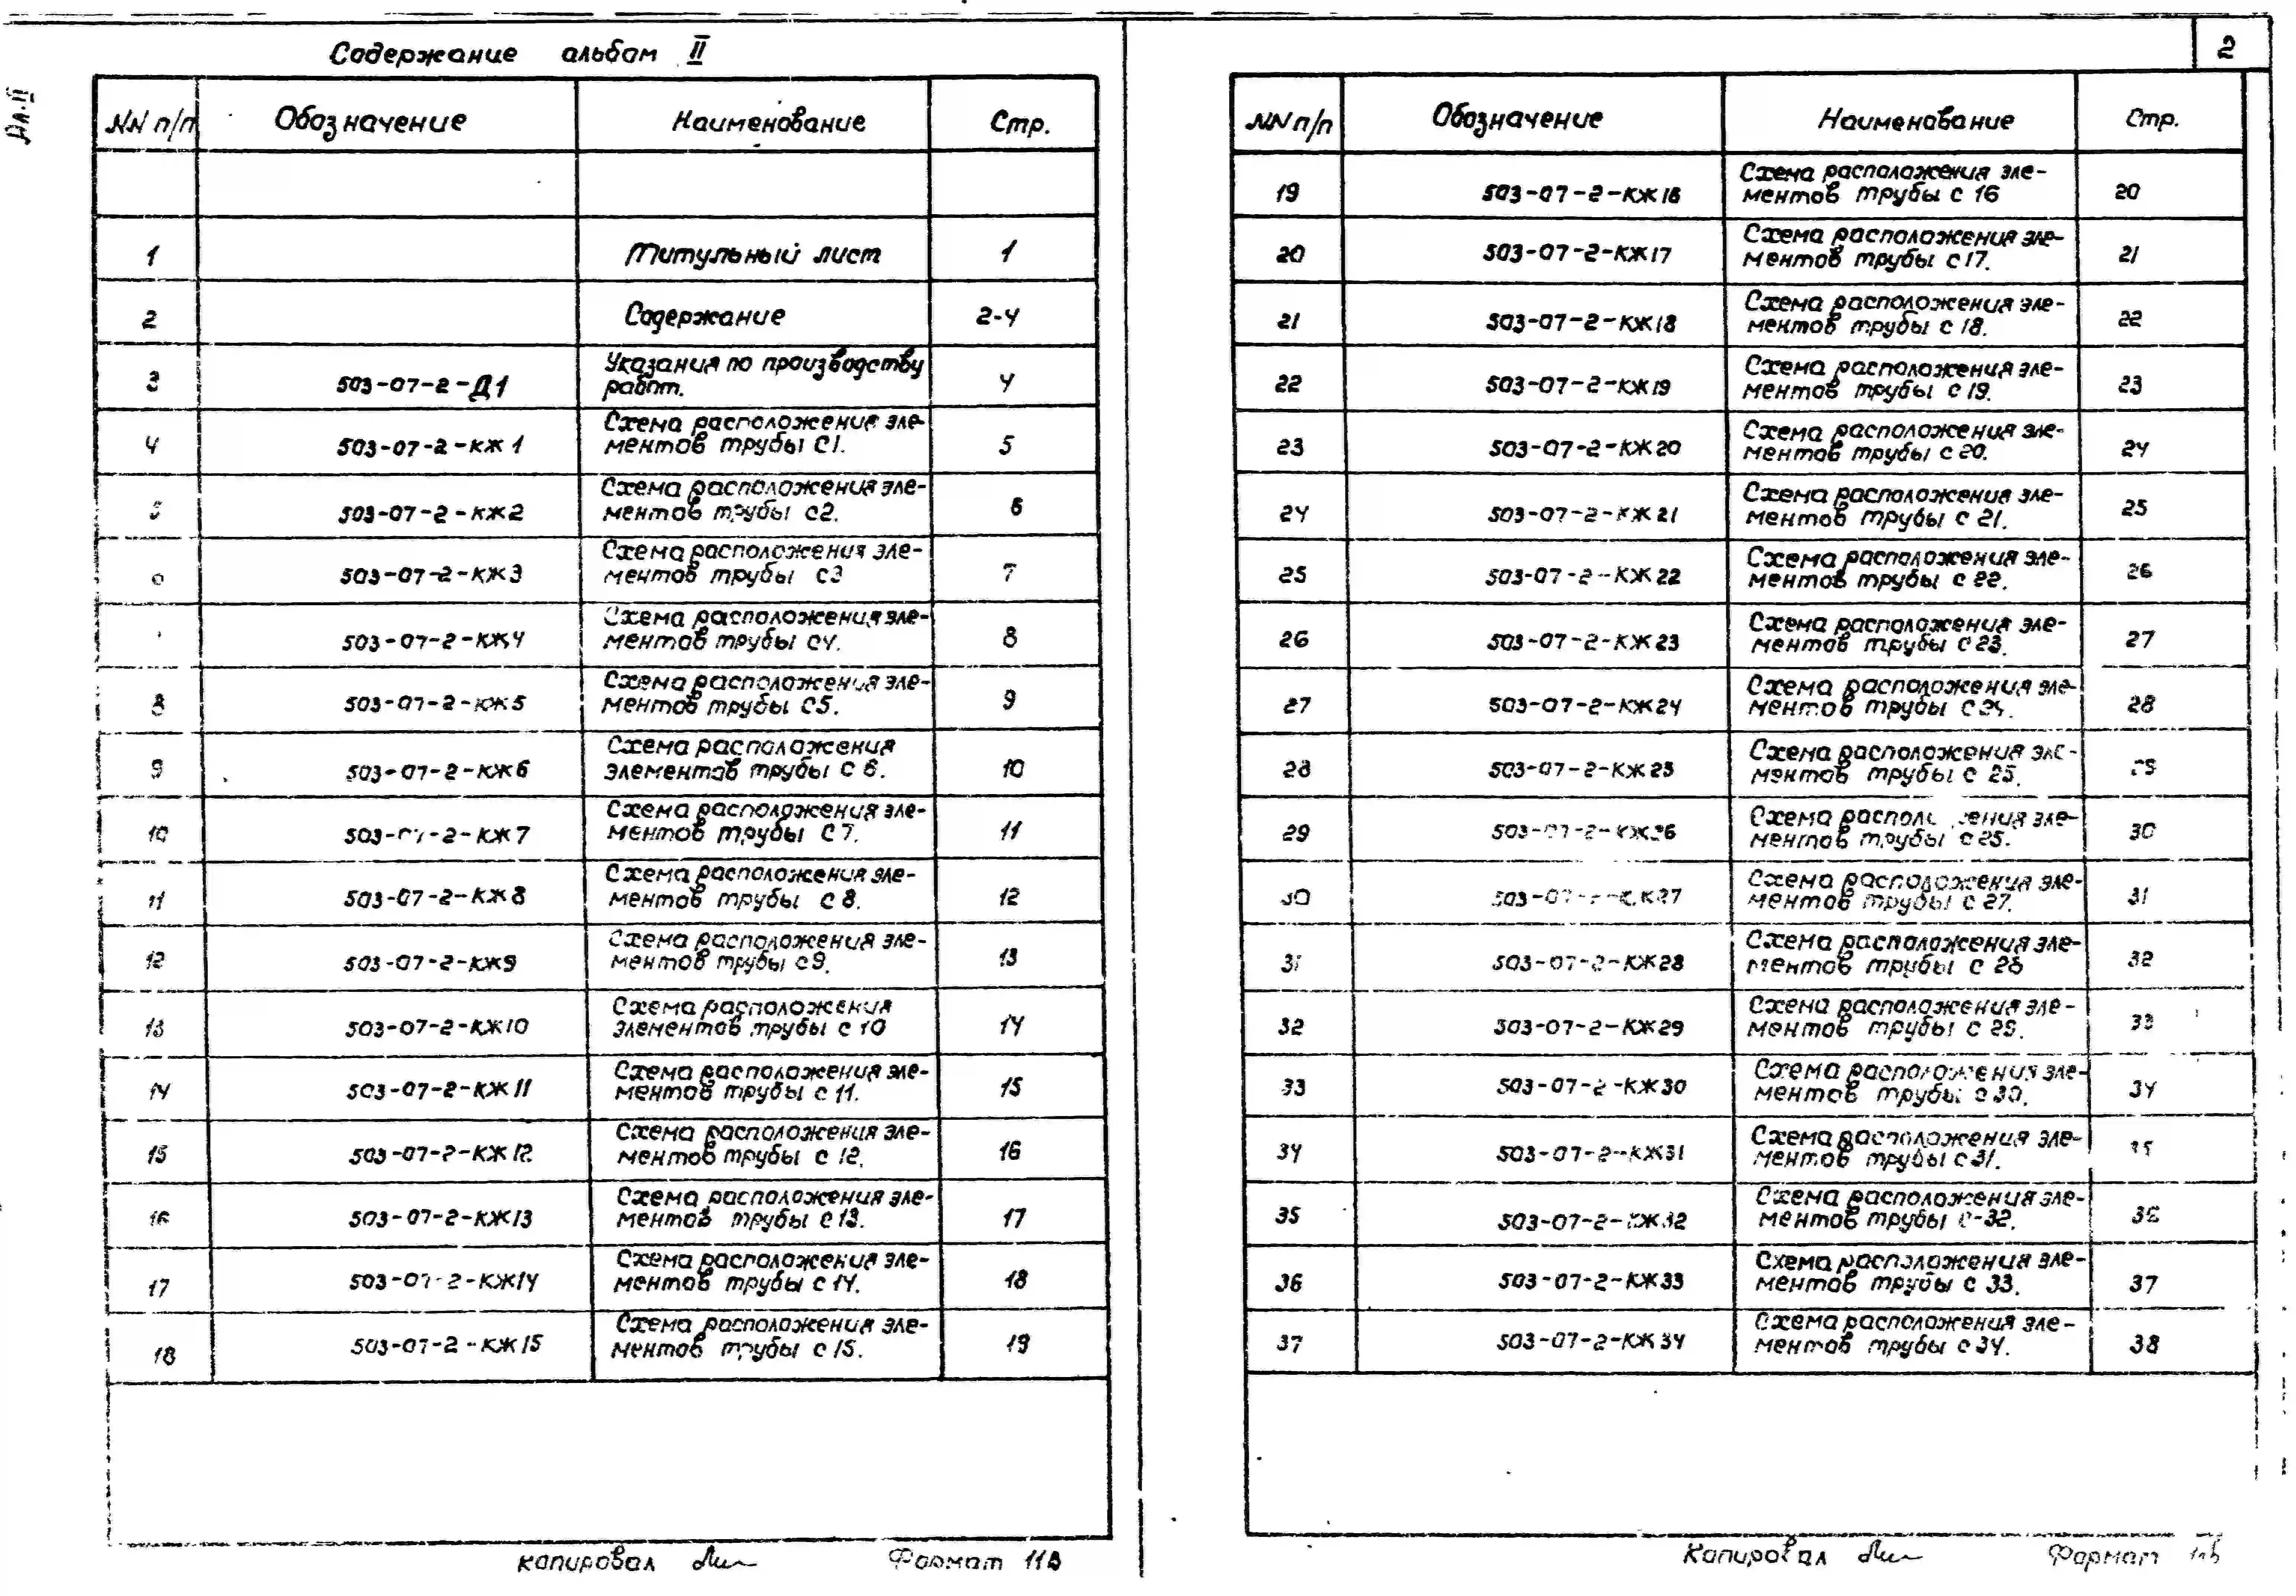 Ал. II
Содержание альбом II
NN п/п Обозначение Наименование Стр.
1 Титульный лист 1
2 Содержание 2-4
3 503-07-2-Д1 Указания по производству
работ. 4
4 503-07-2-КЖ1 Схема расположения эле-
ментов трубы С1. 5
5 503-07-2-КЖ2 Схема расположения эле-
ментов трубы с2. 6
6 503-07-2-КЖ3 Схема расположения эле-
ментов трубы с3 7
503-07-2-КЖ4 Схема расположения эле-
ментов трубы с4. 8
8 503-07-2-КЖ5 Схема расположения эле-
ментов трубы С5. 9
9 503-07-2-КЖ6 Схема расположения
элементов трубы с 6. 10
10 503-07-2-КЖ7 Схема расположения эле-
ментов трубы С7. 11
11 503-07-2-КЖ8 Схема расположения эле-
ментов трубы с 8. 12
12 503-07-2-КЖ9 Схема расположения эле-
ментов трубы с9. 13
13 503-07-2-КЖ10 Схема расположения
элементов трубы с 10 14
14 503-07-2-КЖ11 Схема расположения эле-
ментов трубы с 11. 15
15 503-07-2-КЖ12 Схема расположения эле-
ментов трубы с 12. 16
16 503-07-2-КЖ13 Схема расположения эле-
ментов трубы с 13. 17
17 503-07-2-КЖ14 Схема расположения эле-
ментов трубы с 14. 18
18 503-07-2-КЖ15 Схема расположения эле-
ментов трубы с 15. 19
копировал Формат 11В
2
NN п/п Обозначение Наименование Стр.
19 503-07-2-КЖ16 Схема расположения эле-
ментов трубы с 16 20
20 503-07-2-КЖ17 Схема расположения эле-
ментов трубы с 17. 21
21 503-07-2-КЖ18 Схема расположения эле-
ментов трубы с 18. 22
22 503-07-2-КЖ19 Схема расположения эле-
ментов трубы с 19. 23
23 503-07-2-КЖ20 Схема расположения эле-
ментов трубы с 20. 24
24 503-07-2-КЖ21 Схема расположения эле-
ментов трубы с 21. 25
25 503-07-2-КЖ22 Схема расположения эле-
ментов трубы с 22. 26
26 503-07-2-КЖ23 Схема расположения эле-
ментов трубы с 23. 27
27 503-07-2-КЖ24 Схема расположения эле-
ментов трубы с 24. 28
28 503-07-2-КЖ25 Схема расположения эле-
ментов трубы с 25. 29
29 503-07-2-КЖ26 Схема расположения эле-
ментов трубы с 26. 30
30 503-07-2-КЖ27 Схема расположения эле-
ментов трубы с 27. 31
31 503-07-2-КЖ28 Схема расположения эле-
ментов трубы с 28 32
32 503-07-2-КЖ29 Схема расположения эле-
ментов трубы с 29. 33
33 503-07-2-КЖ30 Схема расположения эле-
ментов трубы с 30. 34
34 503-07-2-КЖ31 Схема расположения эле-
ментов трубы с 31. 35
35 503-07-2-КЖ32 Схема расположения эле-
ментов трубы с-32. 36
36 503-07-2-КЖ33 Схема расположения эле-
ментов трубы с 33. 37
37 503-07-2-КЖ34 Схема расположения эле-
ментов трубы с 34. 38
Копировал Формат